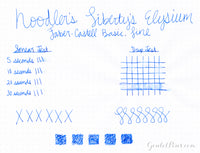 Noodler's Liberty's Elysium
Faber-Castell Basic, Fine
Smear Test
Drip Test
5 seconds
10 seconds
20 seconds
30 seconds
XXXXXX